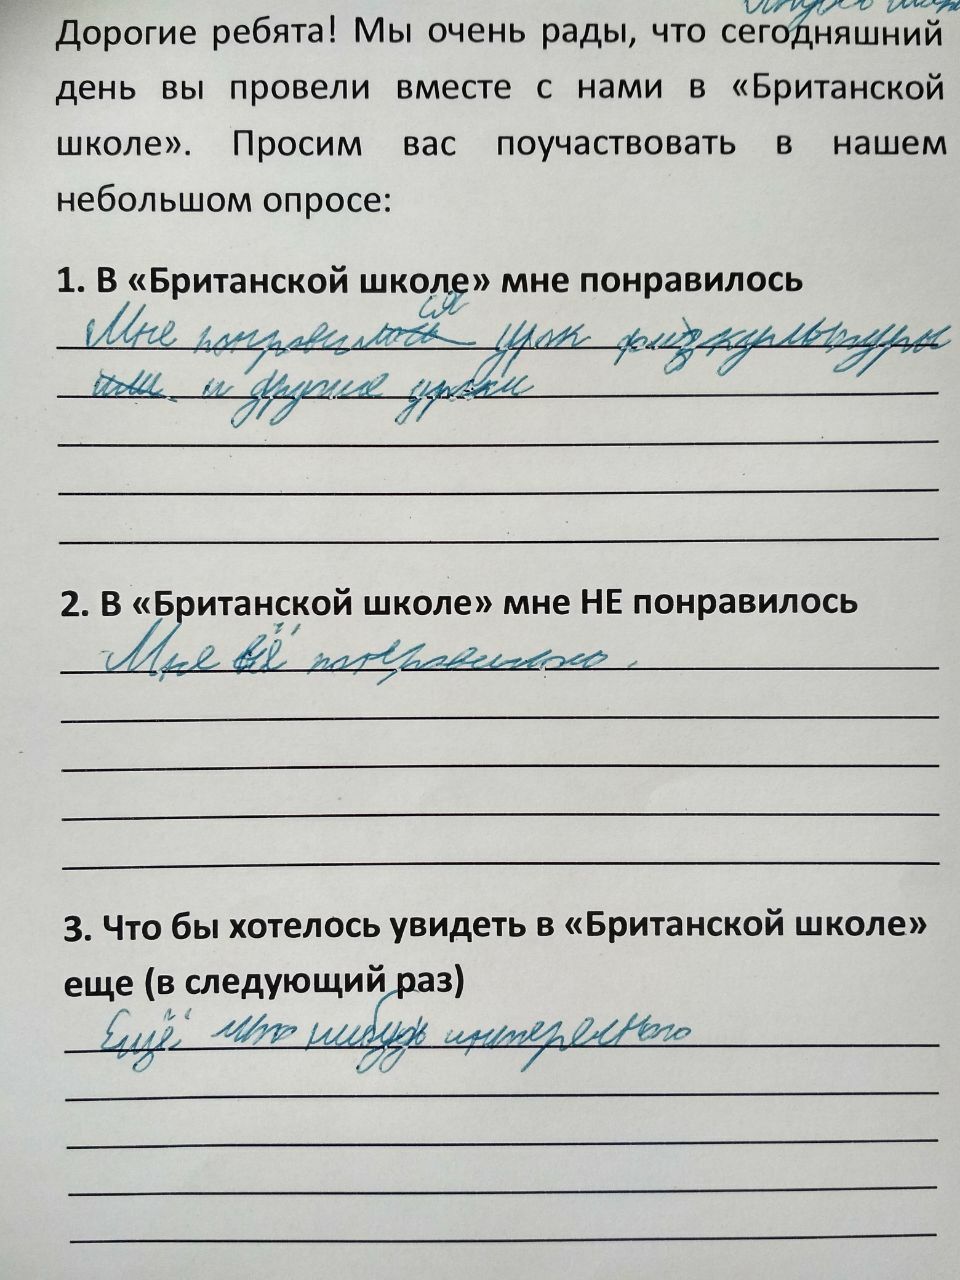 Дорогие ребята! Мы очень рады, что сегодняшний
день вы провели вместе с нами в «Британской
школе». Просим вас поучаствовать в нашем
небольшом опросе:
1. В «Британской школе» мне понравилось
Мне понравился урок физкультуры
и другие уроки
2. В «Британской школе» мне НЕ понравилось
Мне всё понравилось.
3. Что бы хотелось увидеть в «Британской школе»
еще (в следующий раз)
Ещё что нибудь интересного